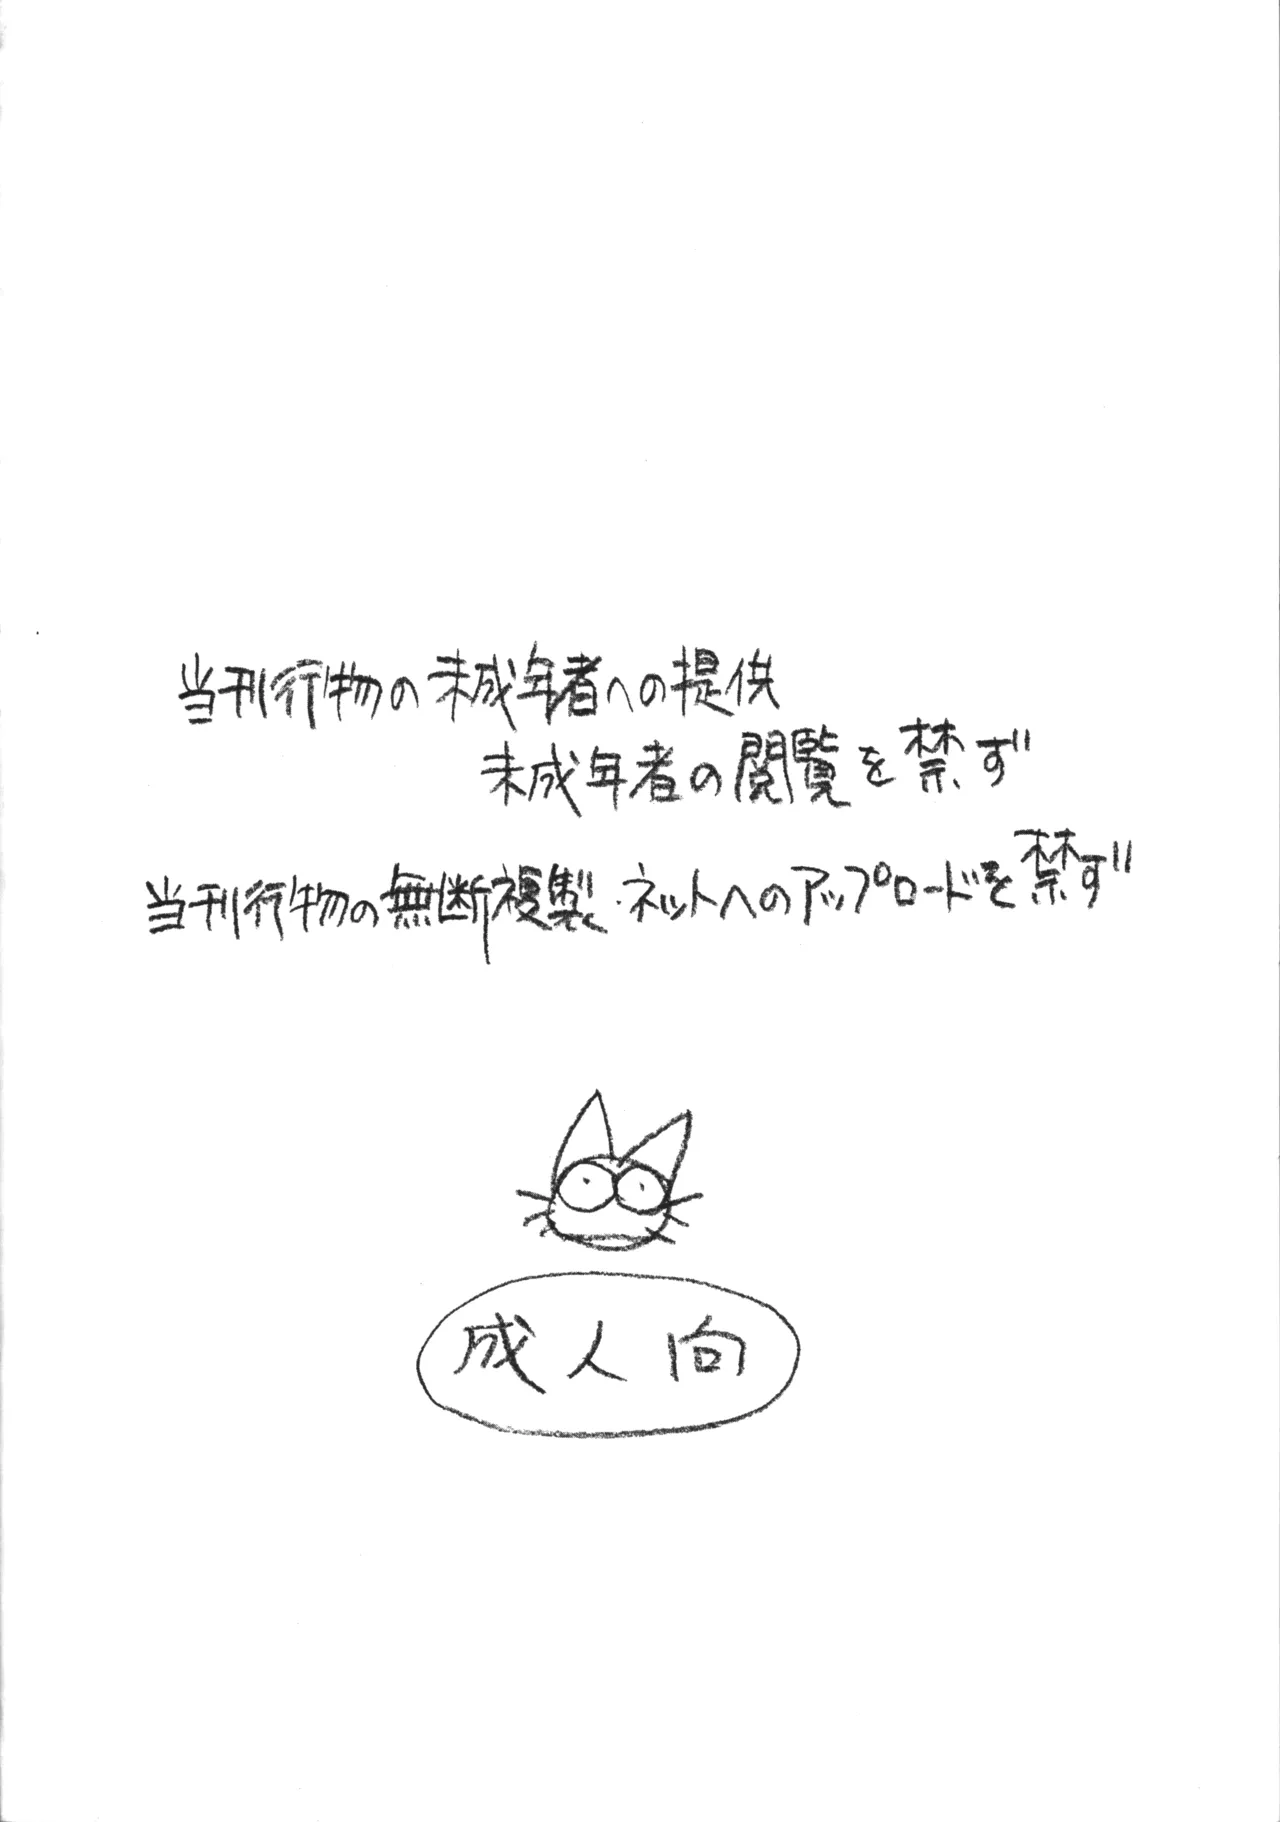 当刊行物の未成年者への提供
未成年者の閲覧を禁ず
当刊行物の無断複製・ネットへのアップロードを禁ず
成人向